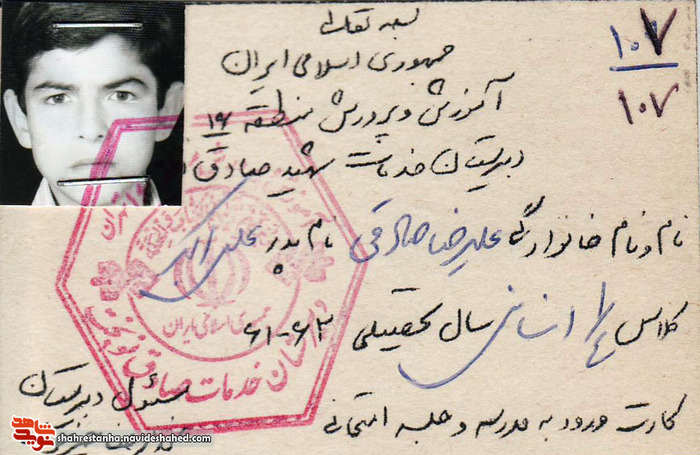 بسمه تعالی
جمهوری اسلامی ایران
آموزش و پرورش منطقه ۱۶
دبیرستان خدمات شهید صادق
۱۰۷
۱۰۷
نام و نام خانوادگی علیرضا صادقی نام پدر علی اکبر
کلاس ۱/۴ انسانی سال تحصیلی ۶۳-۶۱
کارت ورود به مدرسه و جلسه امتحانی
مسئول دبیرستان
جمهوری اسلامی ایران
دبیرستان خدمات صادق
نوید شاهد
shahrestanha.navideshahed.com